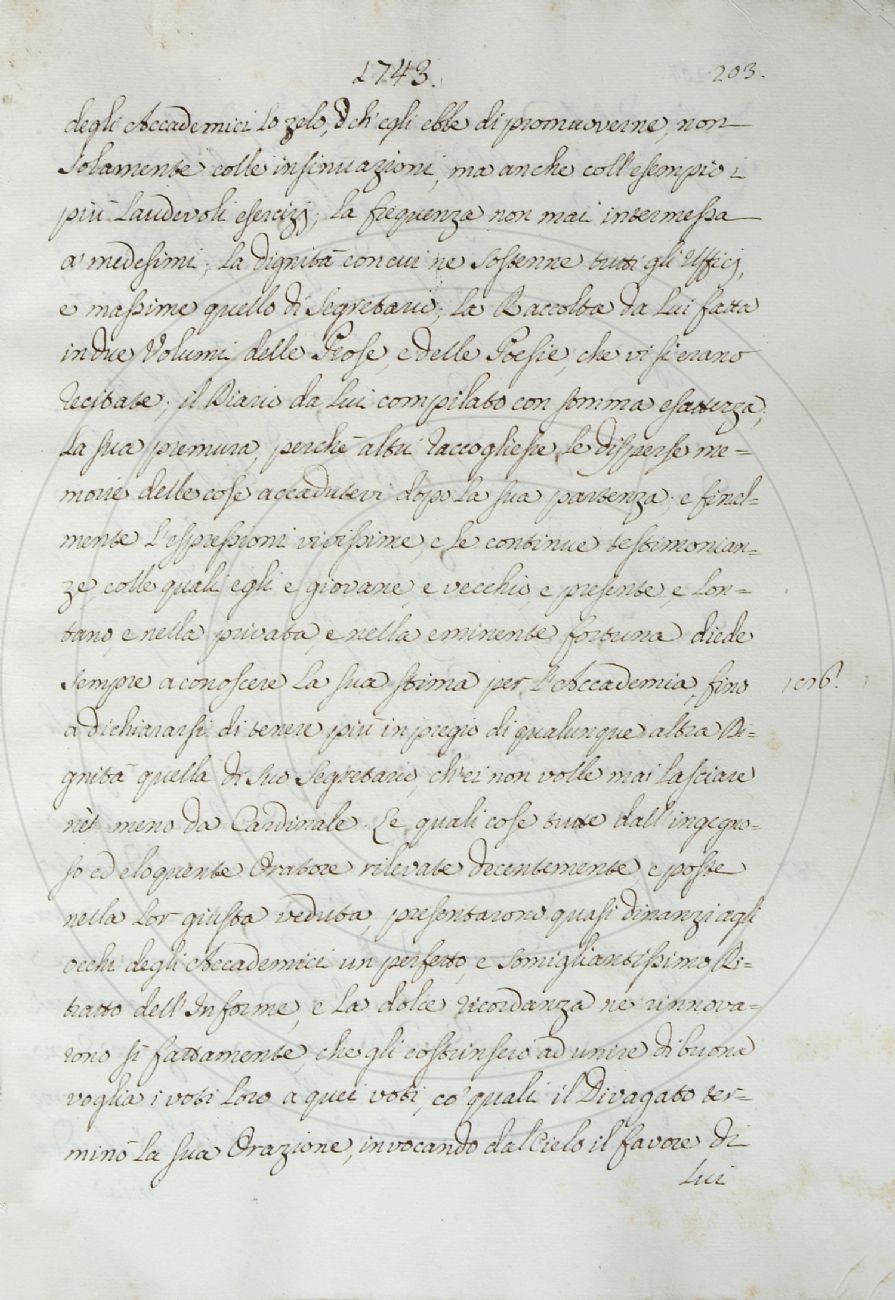 1743.
203.
degli Accademici lo zelo, ch'egli ebbe di promuoverne, non
solamente colle insinuazioni, ma anche coll'esempio i
più laudevoli esercizj; la frequenza non mai intermessa
a' medesimi; la dignità con cui ne sostenne tutti gli Ufficj,
e massime quello di Segretario; la Raccolta da lui fatta
in due Volumi delle Prose, e delle Poesie, che vi si erano
recitate; il Diario da lui compilato con somma esattezza;
la sua premura, perchè altri raccogliesse le disperse me=
morie delle cose accadutevi dopo la sua partenza; e final=
mente l'espressioni vivissime, e le continue testimonian=
ze, colle quali egli e giovane, e vecchio, e presente, e lon=
tano, e nella privata, e nella eminente fortuna diede
sempre a conoscere la sua stima per l'Accademia, fino
a dichiararsi di tenere più in pregio di qualunque altra Di=
gnità quella di suo Segretario, ch'ei non volle mai lasciare
nè meno da Cardinale. Le quali cose tutte dall'ingegno=
so ed eloquente Oratore rilevate decentemente e poste
nella lor giusta veduta, presentarono quasi dinanzi agli
occhi degli Accademici un perfetto, e somigliantissimo Ri=
tratto dell'Informe, e la dolce ricordanza ne rinnova=
rono sì fattamente, che gli costrinsero ad unire di buona
voglia i voti loro a quei voti, co' quali il Divagato ter=
minò la sua Orazione, invocando dal Cielo il favore di
lui